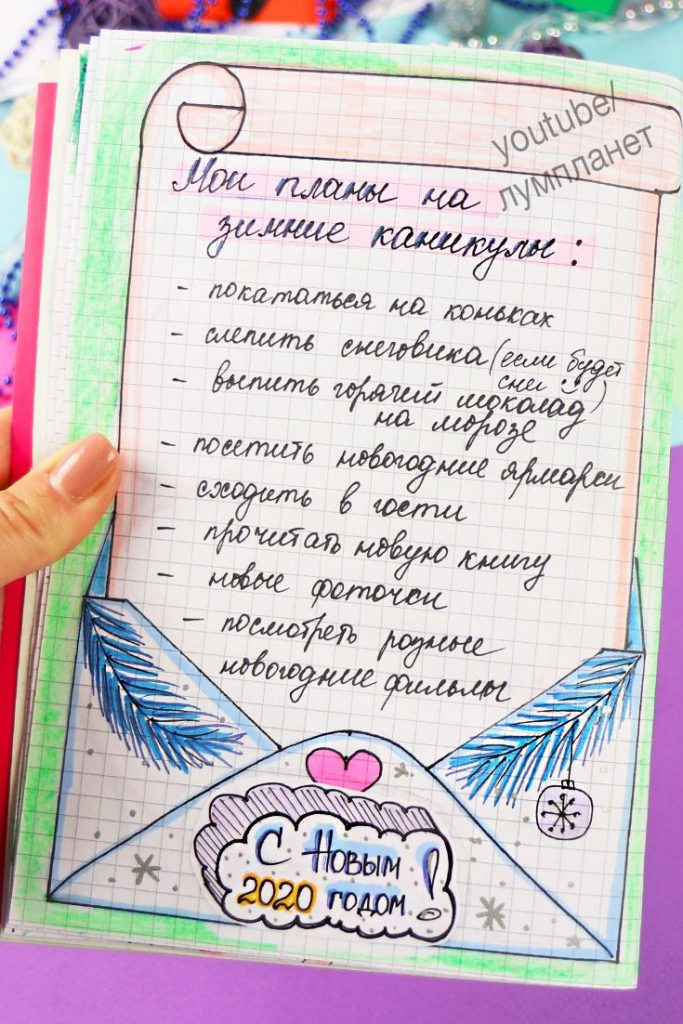 youtube/
лумпланет
Мои планы на
зимние каникулы:
- покататься на коньках
- слепить снеговика (если будет
снег)
- выпить горячий шоколад
на морозе
- посетить новогодние ярмарки
- сходить в гости
- прочитать новую книгу
- новые фоточки
- посмотреть разные
новогодние фильмы
С Новым
2020 годом!